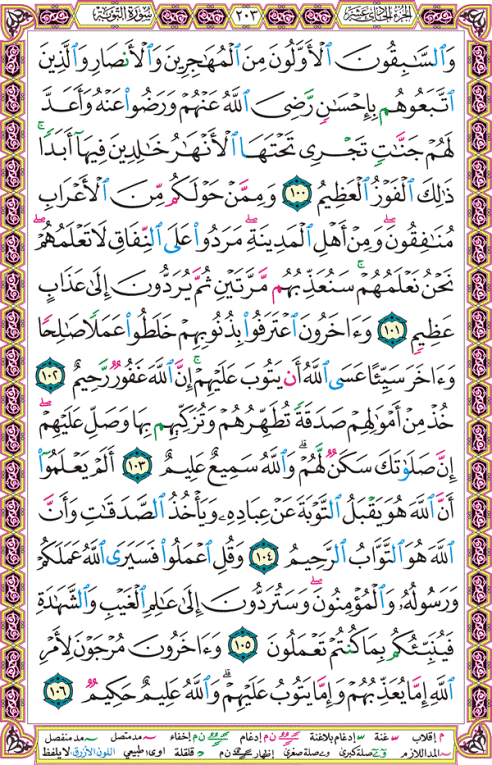 الجزء الحادي عشر ٢٠٣ سورة التوبة
وَٱلسَّٰبِقُونَ ٱلۡأَوَّلُونَ مِنَ ٱلۡمُهَٰجِرِينَ وَٱلۡأَنصَارِ وَٱلَّذِينَ
ٱتَّبَعُوهُم بِإِحۡسَٰنٖ رَّضِيَ ٱللَّهُ عَنۡهُمۡ وَرَضُواْ عَنۡهُ وَأَعَدَّ
لَهُمۡ جَنَّٰتٖ تَجۡرِي تَحۡتَهَا ٱلۡأَنۡهَٰرُ خَٰلِدِينَ فِيهَآ أَبَدٗاۚ
ذَٰلِكَ ٱلۡفَوۡزُ ٱلۡعَظِيمُ ١٠٠ وَمِمَّنۡ حَوۡلَكُم مِّنَ ٱلۡأَعۡرَابِ
مُنَٰفِقُونَۖ وَمِنۡ أَهۡلِ ٱلۡمَدِينَةِۖ مَرَدُواْ عَلَى ٱلنِّفَاقِ لَا تَعۡلَمُهُمۡۖ
نَحۡنُ نَعۡلَمُهُمۡۚ سَنُعَذِّبُهُم مَّرَّتَيۡنِ ثُمَّ يُرَدُّونَ إِلَىٰ عَذَابٍ
عَظِيمٖ ١٠١ وَءَاخَرُونَ ٱعۡتَرَفُواْ بِذُنُوبِهِمۡ خَلَطُواْ عَمَلٗا صَٰلِحٗا
وَءَاخَرَ سَيِّئًا عَسَى ٱللَّهُ أَن يَتُوبَ عَلَيۡهِمۡۚ إِنَّ ٱللَّهَ غَفُورٞ رَّحِيمٌ ١٠٢
خُذۡ مِنۡ أَمۡوَٰلِهِمۡ صَدَقَةٗ تُطَهِّرُهُمۡ وَتُزَكِّيهِم بِهَا وَصَلِّ عَلَيۡهِمۡۖ
إِنَّ صَلَوٰتَكَ سَكَنٞ لَّهُمۡۗ وَٱللَّهُ سَمِيعٌ عَلِيمٌ ١٠٣ أَلَمۡ يَعۡلَمُوٓاْ
أَنَّ ٱللَّهَ هُوَ يَقۡبَلُ ٱلتَّوۡبَةَ عَنۡ عِبَادِهِۦ وَيَأۡخُذُ ٱلصَّدَقَٰتِ وَأَنَّ
ٱللَّهَ هُوَ ٱلتَّوَّابُ ٱلرَّحِيمُ ١٠٤ وَقُلِ ٱعۡمَلُواْ فَسَيَرَى ٱللَّهُ عَمَلَكُمۡ
وَرَسُولُهُۥ وَٱلۡمُؤۡمِنُونَۖ وَسَتُرَدُّونَ إِلَىٰ عَٰلِمِ ٱلۡغَيۡبِ وَٱلشَّهَٰدَةِ
فَيُنَبِّئُكُم بِمَا كُنتُمۡ تَعۡمَلُونَ ١٠٥ وَءَاخَرُونَ مُرۡجَوۡنَ لِأَمۡرِ
ٱللَّهِ إِمَّا يُعَذِّبُهُمۡ وَإِمَّا يَتُوبُ عَلَيۡهِمۡۗ وَٱللَّهُ عَلِيمٌ حَكِيمٞ ١٠٦
م إقلاب س غنة س إدغام بلاغنة ن م إدغام ن م إخفاء مد متصل مد منفصل
المد اللازم صلة كبرى صلة صغرى إظهار ن م قلقلة اوى طبيعي اللون الأزرق لا يلفظ